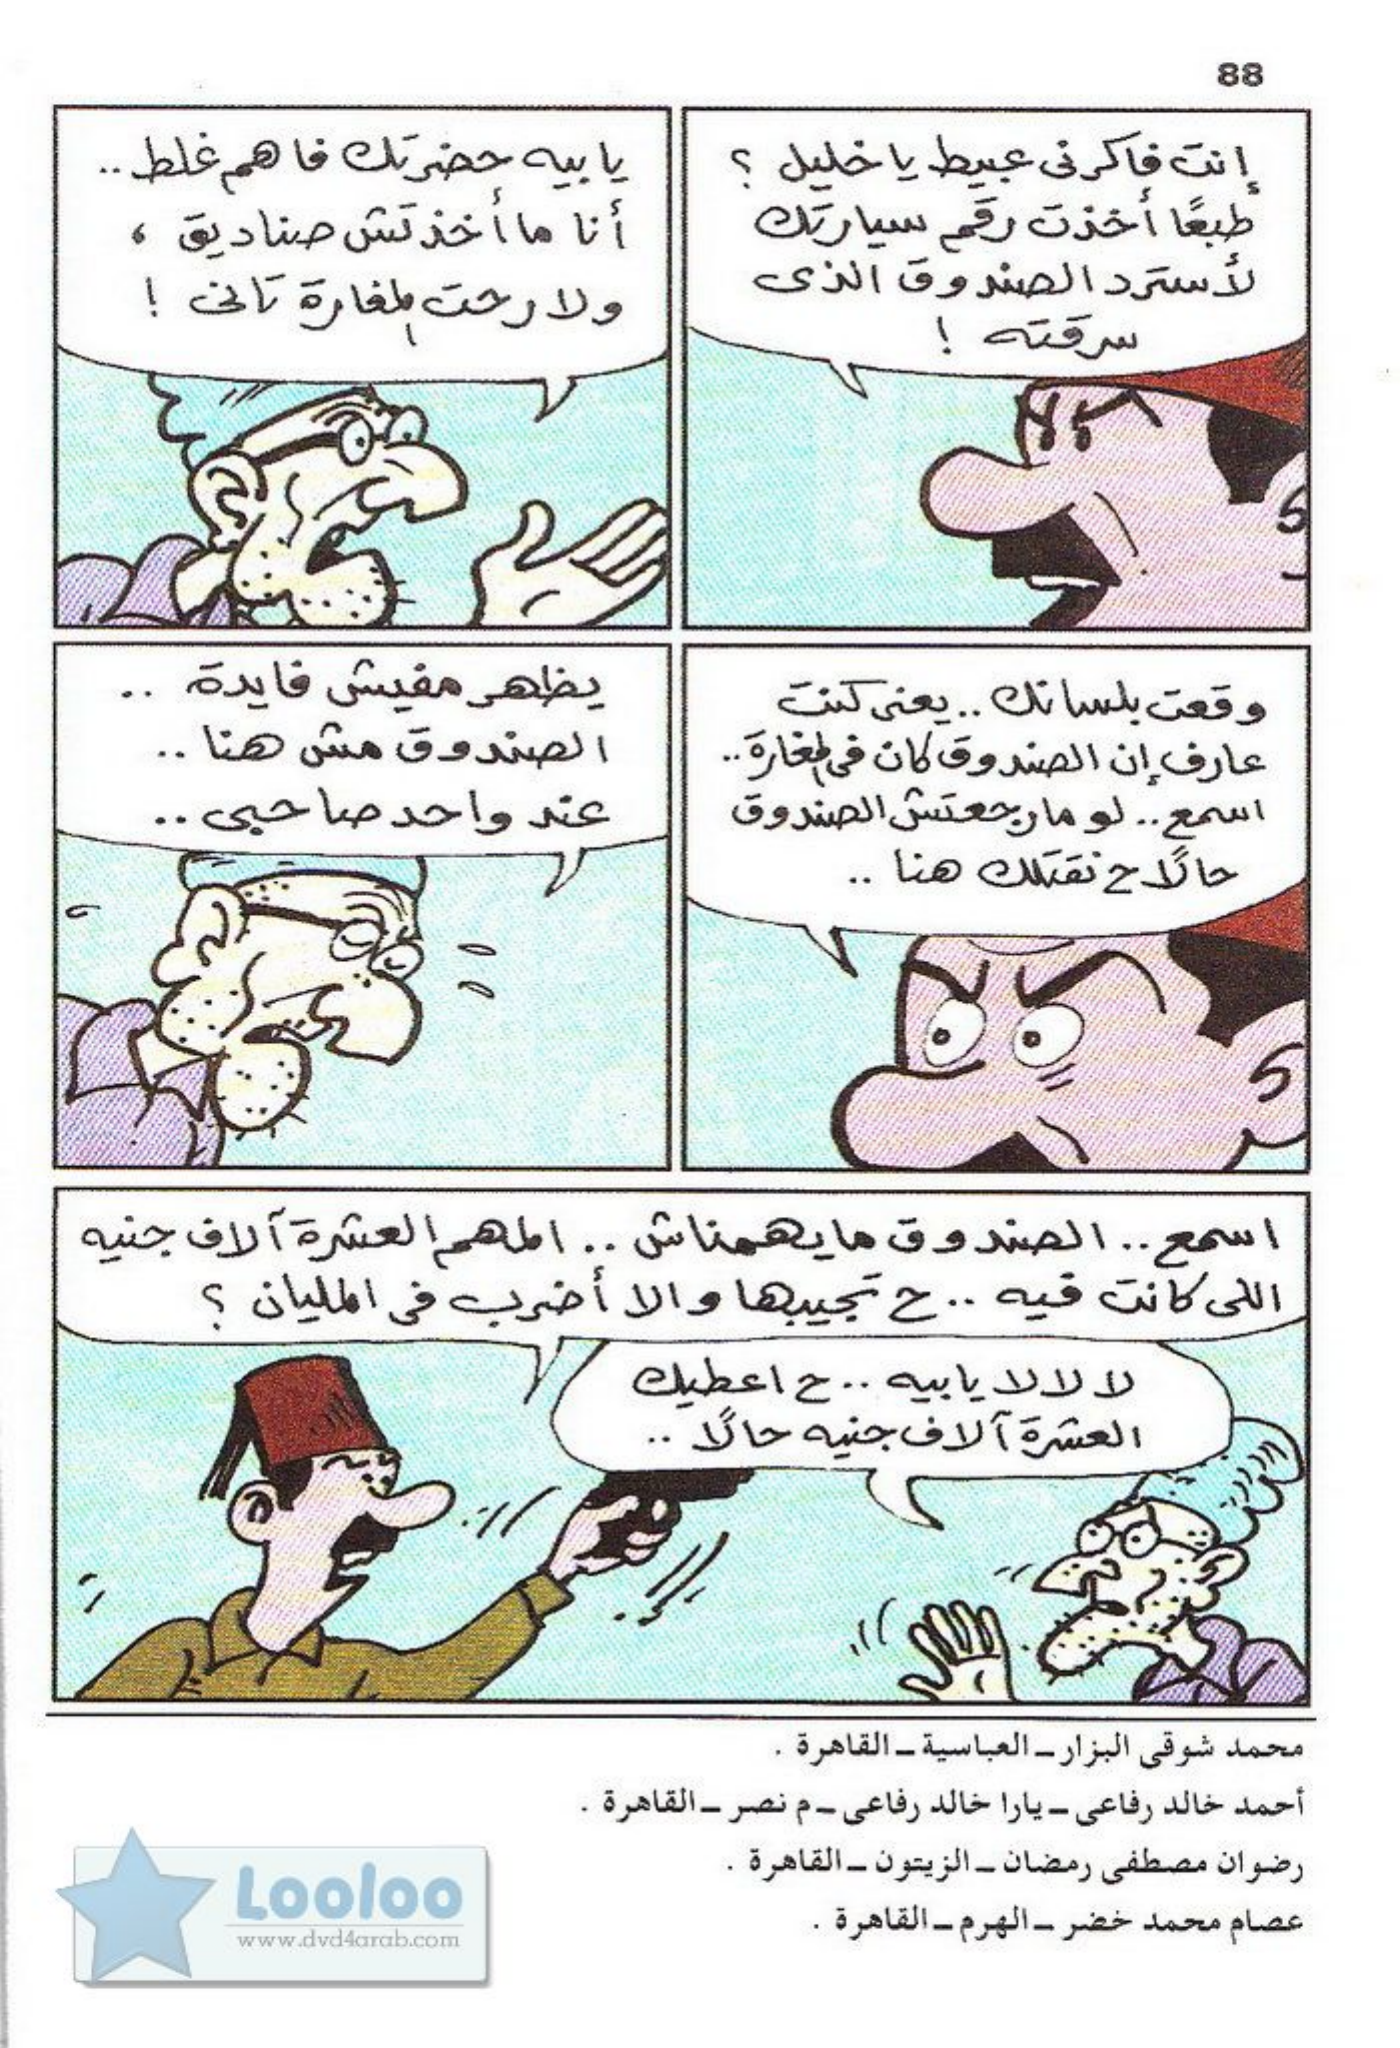 88
إنت فاكرنى عبيط يا خليل ؟
طبعًا أخذت رقم سيارتك
لأسترد الصندوق الذى
سرقته !
يا بيه حضرتك فاهم غلط ..
أنا ما أخذتش صناديق ،
ولا رحت المغارة تانى !
وقعت بلسانك .. يعنى كنت
عارف إن الصندوق كان فى المغارة ..
اسمع .. لو ما رجعتش الصندوق
حالًا ح نقتلك هنا ..
يظهر مفيش فايدة ..
الصندوق مش هنا ..
عند واحد صاحبى ..
اسمع .. الصندوق ما يهمناش .. المهم العشرة آلاف جنيه
اللى كانت فيه .. ح تجيبها والا أضرب فى المليان ؟
لا لا لا يا بيه .. ح اعطيك
العشرة آلاف جنيه حالًا ..
محمد شوقى البزار ـ العباسية ـ القاهرة .
أحمد خالد رفاعى ـ يارا خالد رفاعى ـ م نصر ـ القاهرة .
رضوان مصطفى رمضان ـ الزيتون ـ القاهرة .
عصام محمد خضر ـ الهرم ـ القاهرة .
Looloo
www.dvd4arab.com